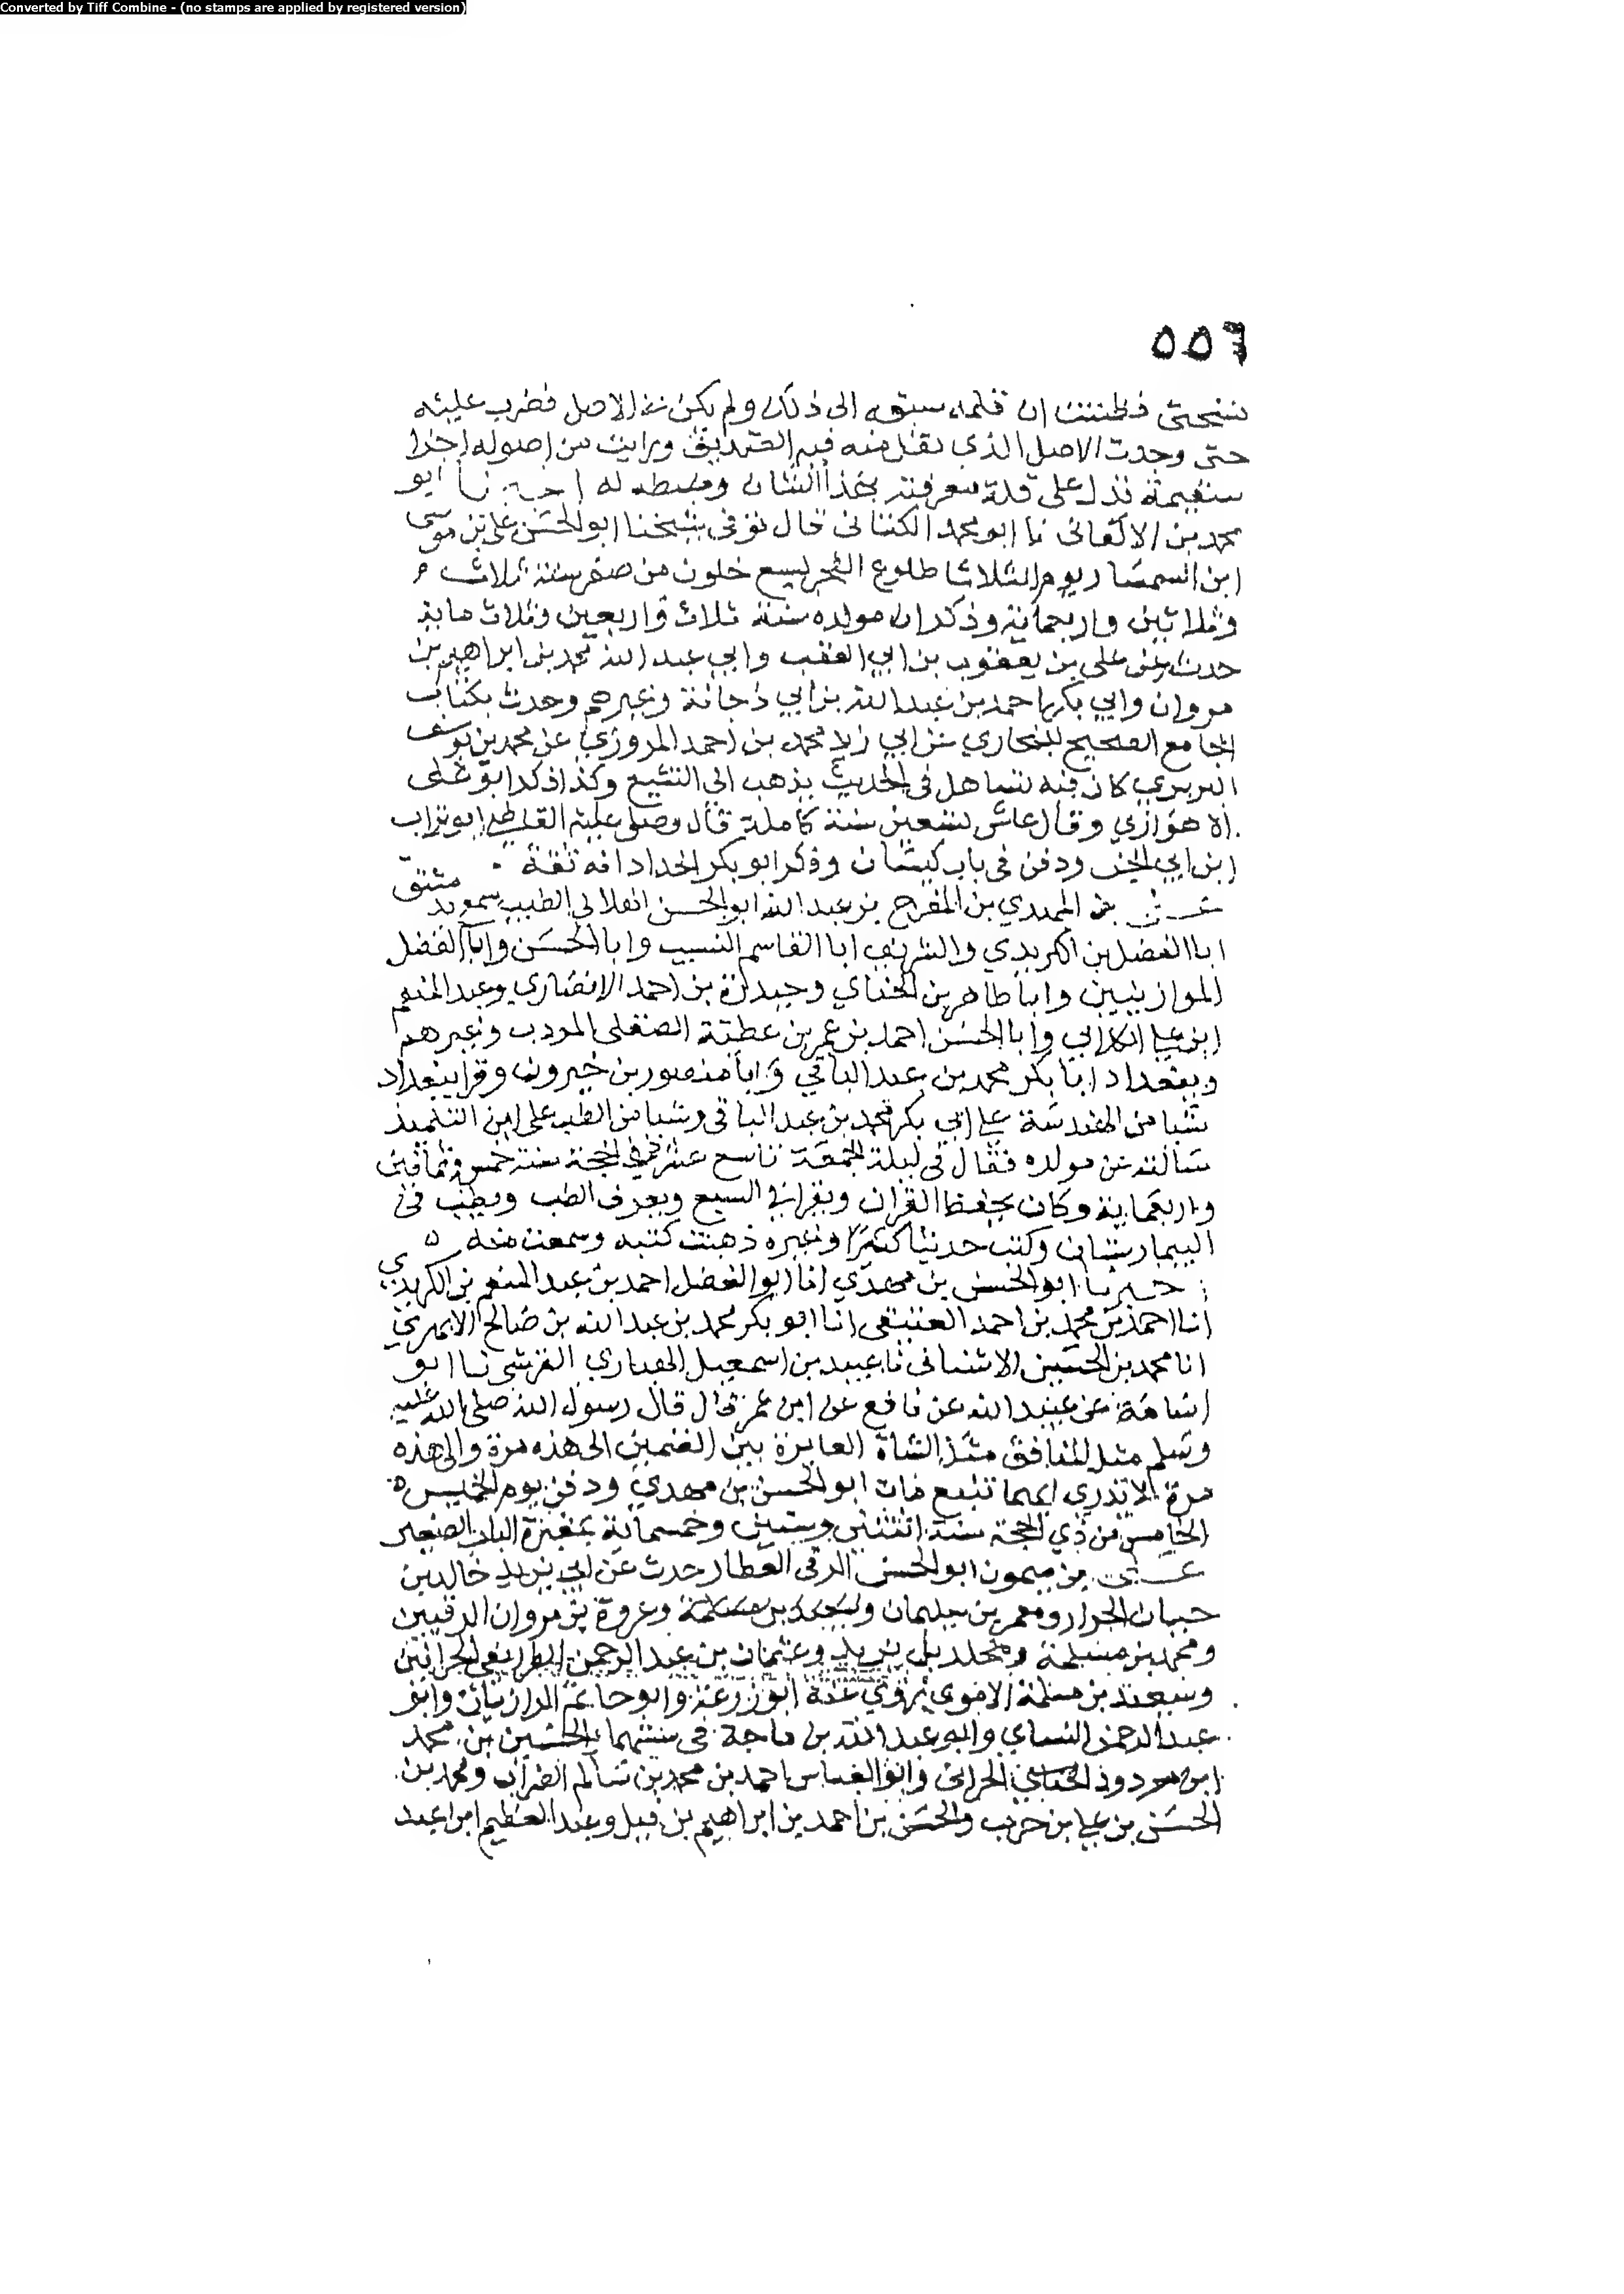 Converted by Tiff Combine - (no stamps are applied by registered version)
٥٥٦
نسختي فظننت ان قلمه سبقه الى ذلك ولم يكن في الاصل فضرب عليه
حتى وجدت الاصل الذي نقل منه فيه الصديق ورايت من اصوله اجزا
سقيمة تدل على قلة معرفته بهذا الشان وضبطه له اخبرنا ابو
محمد بن الاكفاني نا ابو محمد الكتاني قال توفي شيخنا ابو الحسن علي بن موسى
ابن السمسار يوم الثلاثا طلوع الفجر لسبع خلون من صفر سنة ثلاث
وثلاثين واربعماية وذكر ان مولده سنة ثلاث واربعين وثلاث ماية
حدث عن علي بن يعقوب بن ابي العقب وابي عبد الله محمد بن ابراهيم بن
مروان وابي بكر احمد بن عبد الله بن ابي دجانة وغيرهم وحدث بكتاب
الجامع الصحيح للبخاري عن ابي زيد محمد بن احمد المروزي عن محمد بن يوسف
الفربري كان فيه تساهل في الحديث يذهب الى التشيع وكذا ذكر ابو علي
الاهوازي وقال عاش تسعين سنة كاملة قال وصلى عليه القاضي ابو تراب
ابن ابي الجن ودفن في باب كيسان وذكر ابو بكر الحداد انه ثقة
علي بن المهدي بن المفرج بن عبد الله ابو الحسن الهلالي الطبيب سمع بدمشق
ابا الفضل بن الكريدي والشريف ابا القاسم النسيب وابا الحسن وابا الفضل
الموازينيين وابا طاهر بن الحناي وحيدرة بن احمد الانصاري وعبد المنعم
ابن علي الكلابي وابا الحسن احمد بن عمر بن عطية الصقلي المودب وغيرهم
وببغداد ابا بكر محمد بن عبد الباقي وابا منصور بن خيرون وقرا ببغداد
شيا من الهندسة على ابي بكر محمد بن عبد الباقي وشيا من الطب على ابن التلميذ
سالته عن مولده فقال في ليلة الجمعة تاسع عشر ذي الحجة سنة خمس وثمانين
واربعماية وكان يحفظ القران ويقرا في السبع ويعرف الطب ويطب في
البيمارستان وكتب حديثا كثيرا وغيره ذهبت كتبه وسمعت منه
اخبرنا ابو الحسن بن مهدي انا ابو الفضل احمد بن عبد المنعم بن الكريدي
انا احمد بن محمد بن احمد العتيقي انا ابو بكر محمد بن عبد الله بن صالح الابهري
انا محمد بن الحسين الاشناني نا عبيد بن اسمعيل الهباري القرشي نا ابو
اسامة عن عبيد الله عن نافع عن ابن عمر قال قال رسول الله صلى الله عليه
وسلم مثل المنافق مثل الشاة العايرة بين الغنمين الى هذه مرة والى هذه
مرة لا تدري ايهما تتبع مات ابو الحسن بن مهدي ودفن يوم الخميس
الخامس من ذي الحجة سنة اثنتين وستين وخمسماية بمقبرة الباب الصغير
علي بن ميمون ابو الحسن الرقي العطار حدث عن ابي يزيد خالد بن
حيان الخراز ومعمر بن سليمان وعروة بن مروان الرقيين
ومحمد بن مسلمة ومخلد بن يزيد وعثمان بن عبد الرحمن الطرايفي الحرانيين
وسعيد بن مسلمة الاموي روى عنه ابو زرعة وابو حاتم الرازيان وابو
عبد الرحمن النساي وابو عبد الله بن ماجة في سننهما والحسين بن محمد
ابن مودود الحراني وابو العباس احمد بن محمد بن سالم الضراب ومحمد بن
الحسن بن علي بن حرب والحسن بن احمد بن ابراهيم بن فيل وعبد العظيم ابن عبد